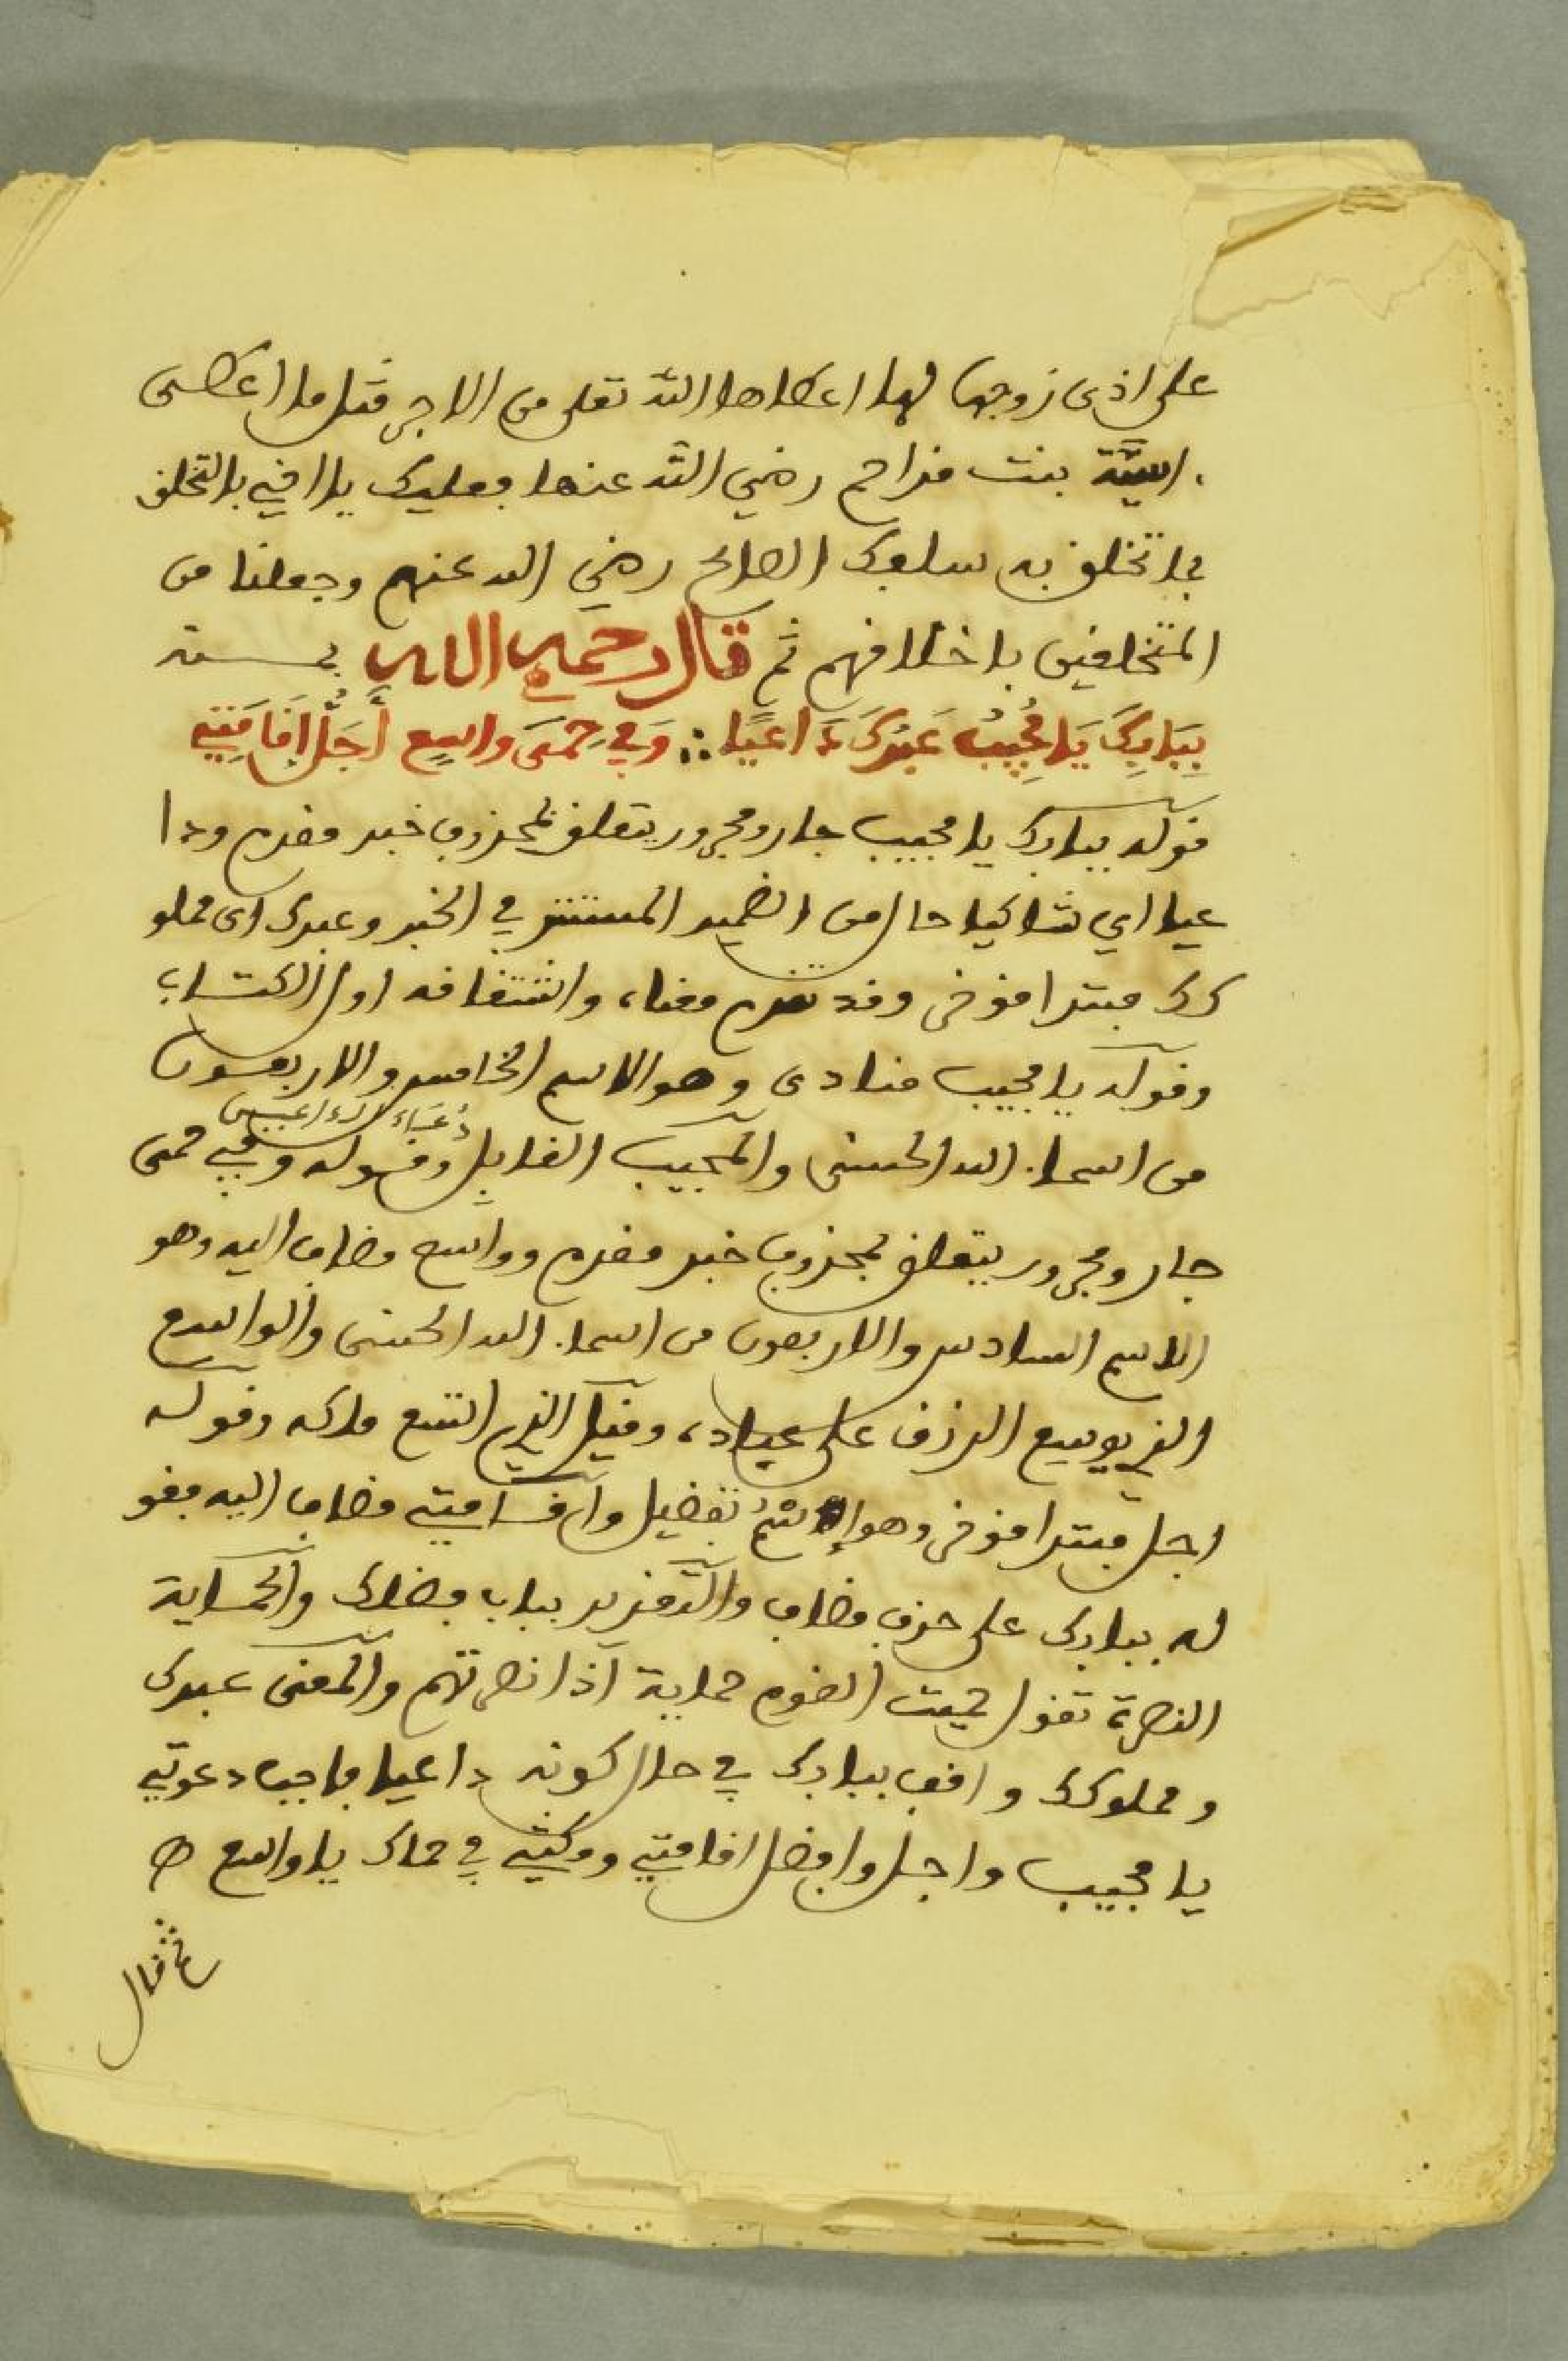 على اذى زوجها لها اعطاها الله تعلى من الاجر مثل ما اعطى
ءاسية بنت مزاحم رضي الله عنها فعليك يا اخي بالتخلق
بما تخلق به سلفك الصالح رضي الله عنهم وجعلنا من
المتخلقين باخلاقهم ثم قال رحمه الله
بِبَابِكَ يَا مُجِيبُ عَبْدُكَ دَاعِيًا ∴ وَفِي حِمَى وَاسِعٍ أَجَلُّ إِقَامَتِي
قوله ببابك يا مجيب جار ومجرور يتعلق بمحذوف خبر مقدم ودا
عيا اي شاكيا حال من الضمير المستتر في الخبر وعبدك اى مملو
كك مبتدا موخر وقد تقدم معناه واشتقاقه اول الكتاب
وقوله يا مجيب منادى وهو الاسم الخامس والاربعون
من اسماء الله الحسنى والمجيب القابل دُعَاءَ الداعين وقوله وفي حمى
جار ومجرور يتعلق بمحذوف خبر مقدم وواسع مضاف اليه وهو
الاسم السادس والاربعون من اسماء الله الحسنى والواسع
الذي يوسع الرزق على عباده وقيل الذي اتسع ملكه وقوله
اجل مبتدا موخر وهو إسْمُ تفضيل واقامتي مضاف اليه فقو
له ببابك على حذف مضاف والتقدير بباب فضلك والحماية
النصرة تقول حميت القوم حماية اذا نصرتهم والمعنى عبدك
ومملوكك واقف ببابك في حال كونه داعيا فاجب دعوتي
يا مجيب واجل وافضل اقامتي ومكثي في حماك يا واسع
ثم قال